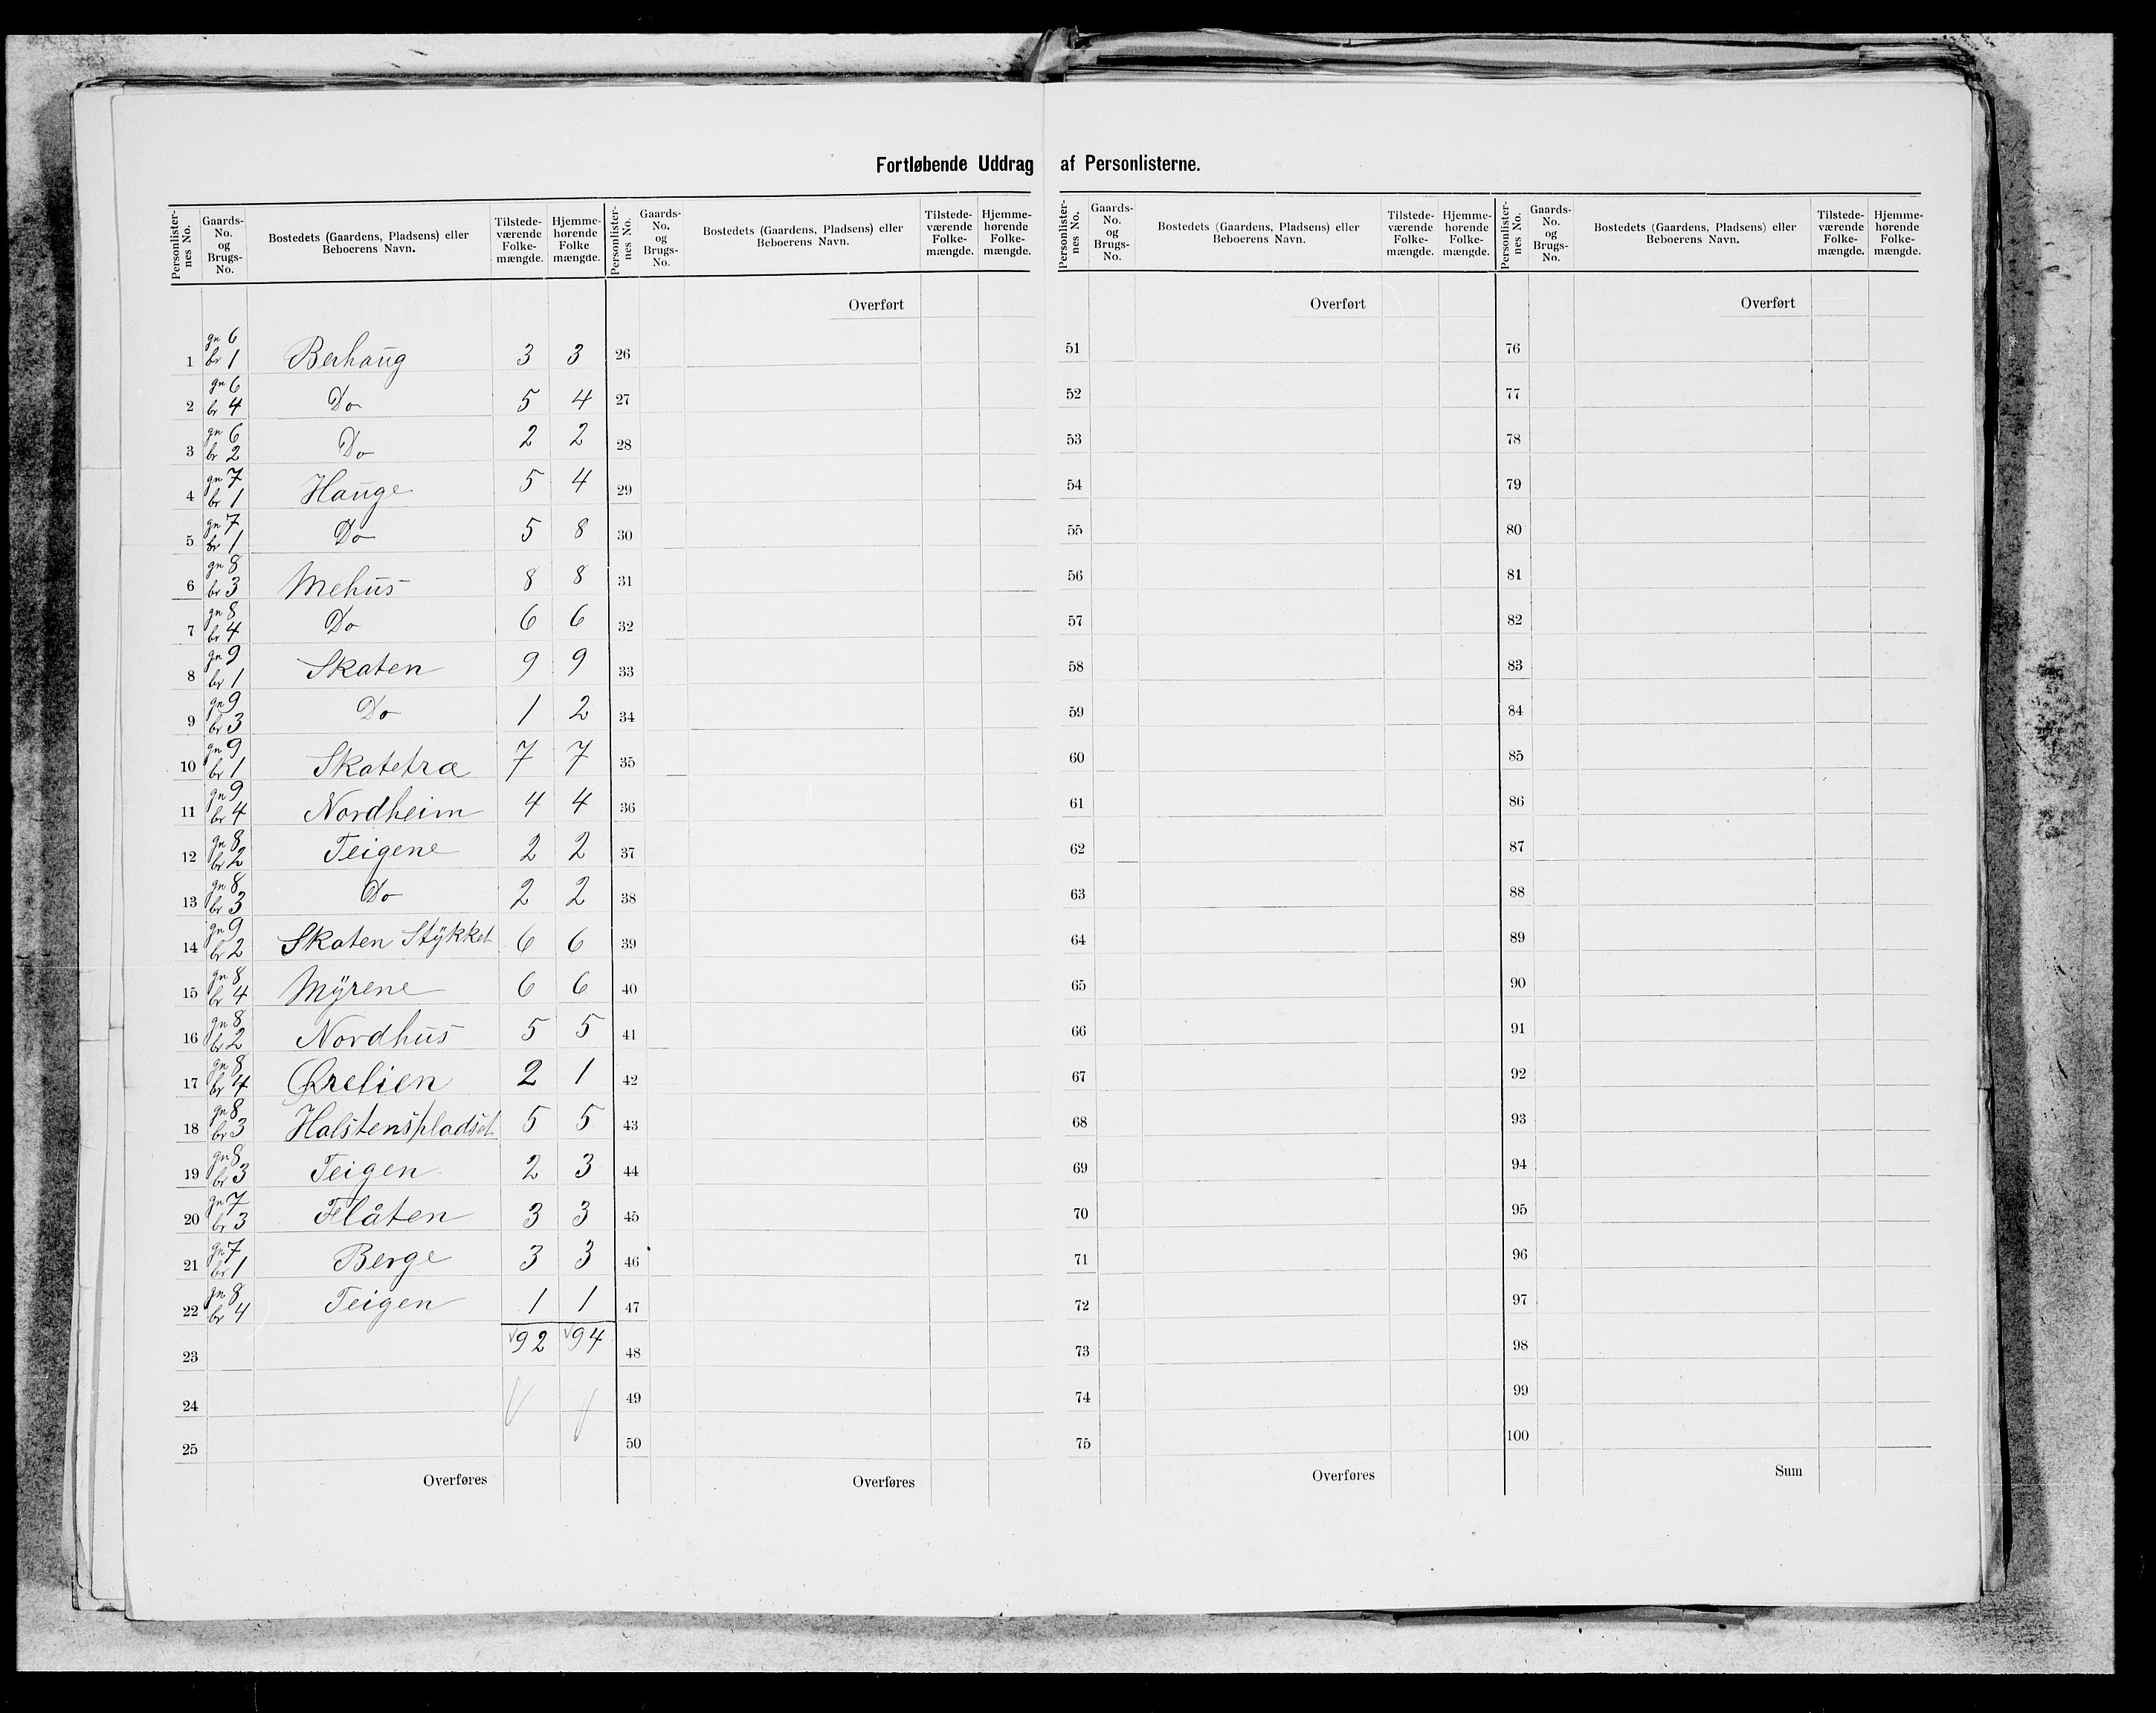 Fortløbende Uddrag af Personlisterne.
Personlister-nes No. Gaards-No. og Brugs-No. Bostedets (Gaardens, Pladsens) eller Beboerens Navn. Tilstede-værende Folke-mængde. Hjemme-hørende Folke mængde.
Personlister-nes No. Gaards-No. og Brugs-No. Bostedets (Gaardens, Pladsens) eller Beboerens Navn. Tilstede-værende Folke-mængde. Hjemme-hørende Folke-mængde.
Personlister-nes No. Gaards-No. og Brugs-No. Bostedets (Gaardens, Pladsens) eller Beboerens Navn. Tilstede-værende Folke-mængde. Hjemme-hørende Folke-mængde.
Personlister-nes No. Gaards-No. og Brugs-No. Bostedets (Gaardens, Pladsens) eller Beboerens Navn. Tilstede-værende Folke-mængde. Hjemme-hørende Folke-mængde.
Overført Overført Overført
1 gn 6 br 1 Berhaug 3 3 26 51 76
2 gn 6 br 4 Do 5 4 27 52 77
3 gn 6 br 2 Do 2 2 28 53 78
4 gn 7 br 1 Hauge 5 4 29 54 79
5 gn 7 br 1 Do 5 8 30 55 80
6 gn 8 br 3 Mehus 8 8 31 56 81
7 gn 8 br 4 Do 6 6 32 57 82
8 gn 9 br 1 Skaten 9 9 33 58 83
9 gn 9 br 3 Do 1 2 34 59 84
10 gn 9 br 1 Skatetræ 7 7 35 60 85
11 gn 9 br 4 Nordheim 4 4 36 61 86
12 gn 8 br 2 Teigene 2 2 37 62 87
13 gn 8 br 3 Do 2 2 38 63 88
14 gn 9 br 2 Skaten Stykket 6 6 39 64 89
15 gn 8 br 4 Myrene 6 6 40 65 90
16 gn 8 br 2 Nordhus 5 5 41 66 91
17 gn 8 br 4 Ørelien 2 1 42 67 92
18 gn 8 br 3 Halstenspladset 5 5 43 68 93
19 gn 8 br 3 Teigen 2 3 44 69 94
20 gn 7 br 3 Flåten 3 3 45 70 95
21 gn 7 br 1 Berge 3 3 46 71 96
22 gn 8 br 4 Teigen 1 1 47 72 97
23 92 94 48 73 98
24 49 74 99
25 50 75 100
Overføres Overføres Overføres Sum